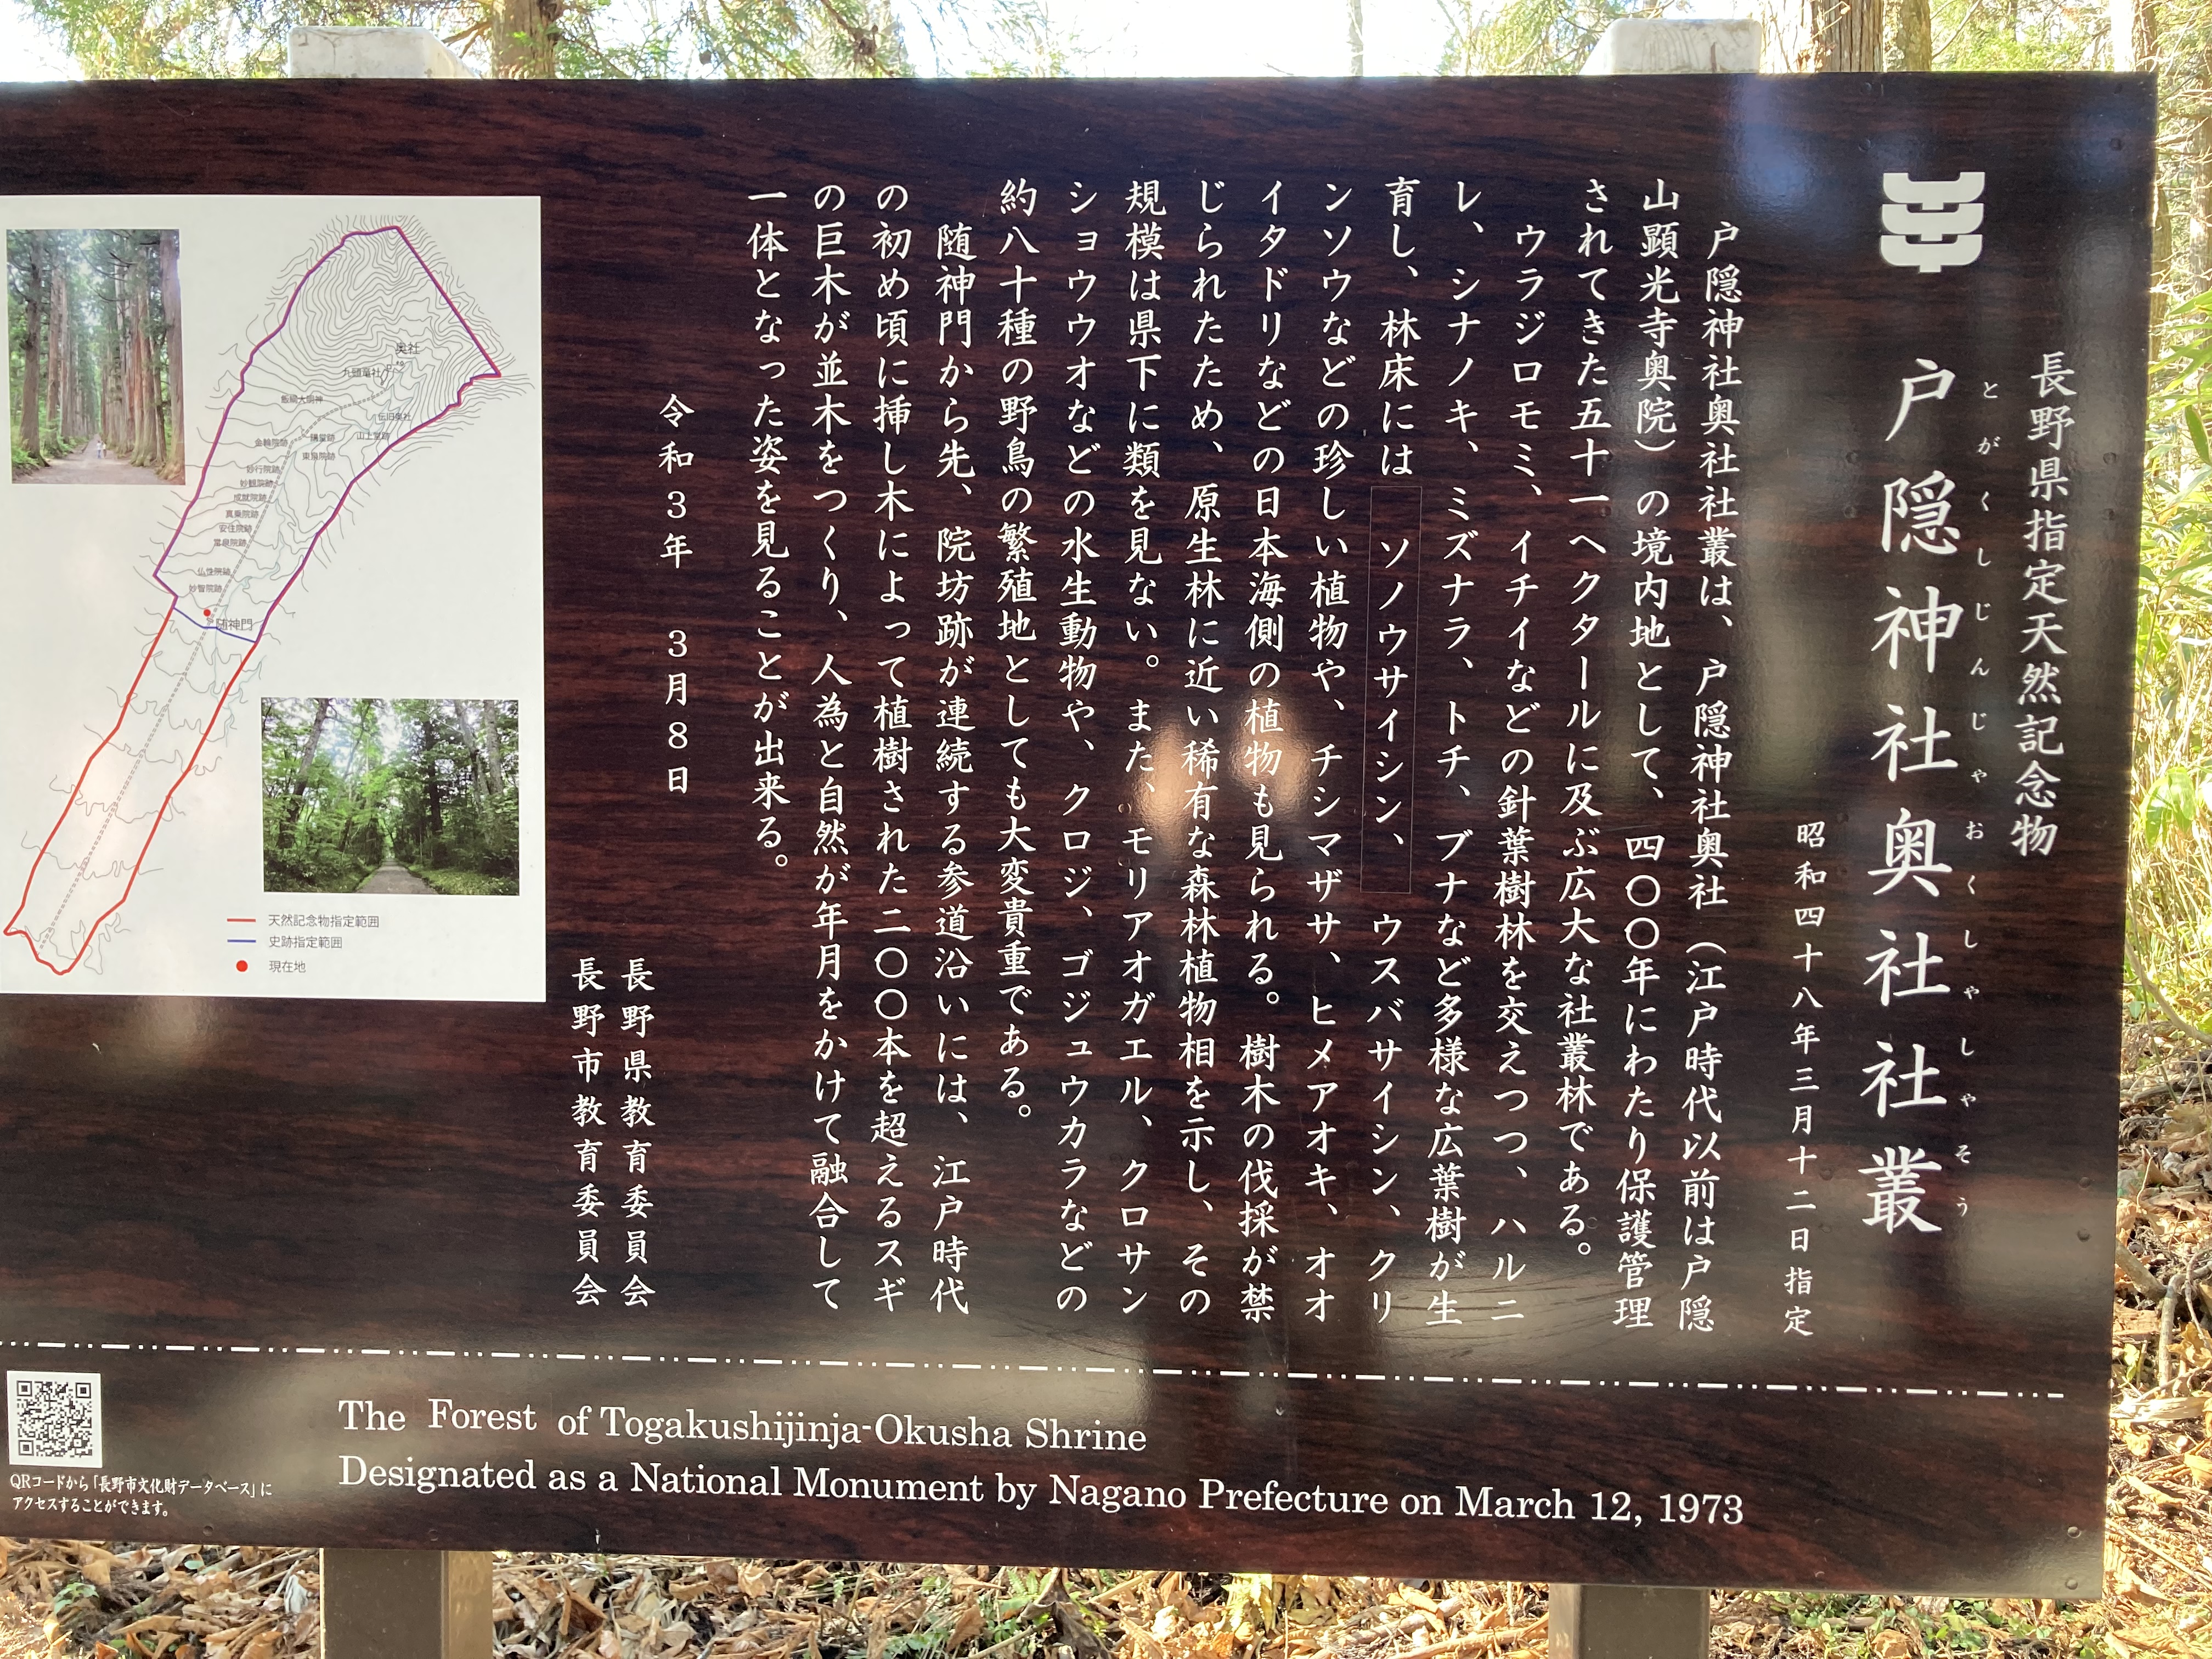 長野県指定天然記念物
とがくしじんじゃおくしゃしゃそう
戸隠神社奥社社叢
昭和四十八年三月十二日指定
戸隠神社奥社社叢は、戸隠神社奥社（江戸時代以前は戸隠
山顕光寺奥院）の境内地として、四〇〇年にわたり保護管理
されてきた五十一ヘクタールに及ぶ広大な社叢林である。
ウラジロモミ、イチイなどの針葉樹林を交えつつ、ハルニ
レ、シナノキ、ミズナラ、トチ、ブナなど多様な広葉樹が生
育し、林床には ソノウサイシン、 ウスバサイシン、クリ
ンソウなどの珍しい植物や、チシマザサ、ヒメアオキ、オオ
イタドリなどの日本海側の植物も見られる。樹木の伐採が禁
じられたため、原生林に近い稀有な森林植物相を示し、その
規模は県下に類を見ない。また、モリアオガエル、クロサン
ショウウオなどの水生動物や、クロジ、ゴジュウカラなどの
約八十種の野鳥の繁殖地としても大変貴重である。
随神門から先、院坊跡が連続する参道沿いには、江戸時代
の初め頃に挿し木によって植樹された二〇〇本を超えるスギ
の巨木が並木をつくり、人為と自然が年月をかけて融合して
一体となった姿を見ることが出来る。
令和３年　３月８日
長野県教育委員会
長野市教育委員会
奥社
九頭竜社
飯綱大明神
伝旧奥社
山上堂跡
講堂跡
金輪院跡
東泉院跡
妙行院跡
妙観院跡
成就院跡
真乗院跡
安住院跡
常泉院跡
仏性院跡
妙智院跡
随神門
天然記念物指定範囲
史跡指定範囲
現在地
The Forest of Togakushijinja-Okusha Shrine
Designated as a National Monument by Nagano Prefecture on March 12, 1973
QRコードから「長野市文化財データベース」に
アクセスすることができます。